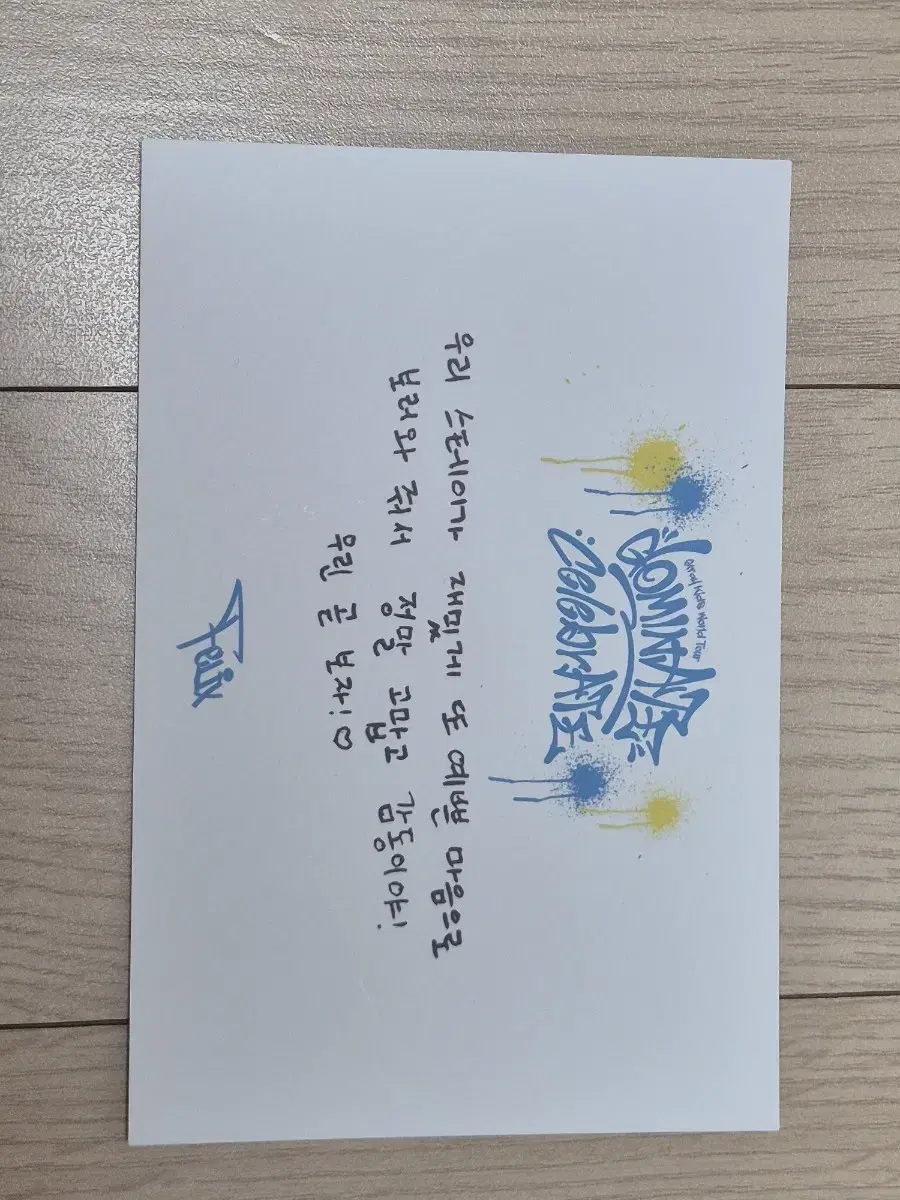 Stray Kids World Tour
DOMINATE
CELEBRATE
우리 스테이가 재밌게 또 예쁜 마음으로
보러와 줘서 정말 고맙고 감동이야!
우린 곧 보자!♡
Felix